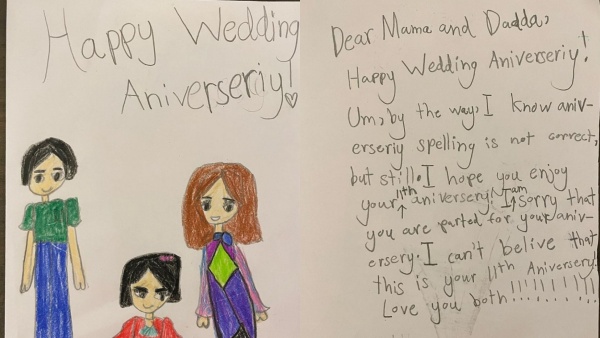 Happy Wedding
Aniverseriy!
Dear Mama and Dadda,
Happy Wedding Aniverseriy!
Um, by the way, I know aniv-
erseriy spelling is not correct,
but still. I hope you enjoy
your 11th aniversery! I am sorry that
you are parted for your aniv-
ersery. I can't belive that
this is your 11th Aniversery!
Love you both!!!!!!!!!!